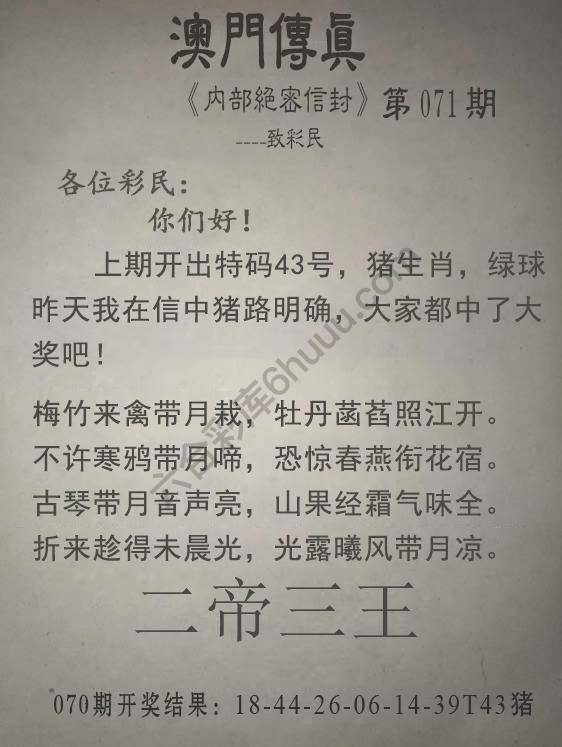 澳門傳真
《内部絕密信封》第071期
----致彩民
各位彩民：
你们好！
上期开出特码43号，猪生肖，绿球
昨天我在信中猪路明确，大家都中了大
奖吧！
梅竹来禽带月栽，牡丹菡萏照江开。
不许寒鸦带月啼，恐惊春燕衔花宿。
古琴带月音声亮，山果经霜气味全。
折来趁得未晨光，光露曦风带月凉。
二帝三王
070期开奖结果：18-44-26-06-14-39T43猪
六合彩库6huuu.com